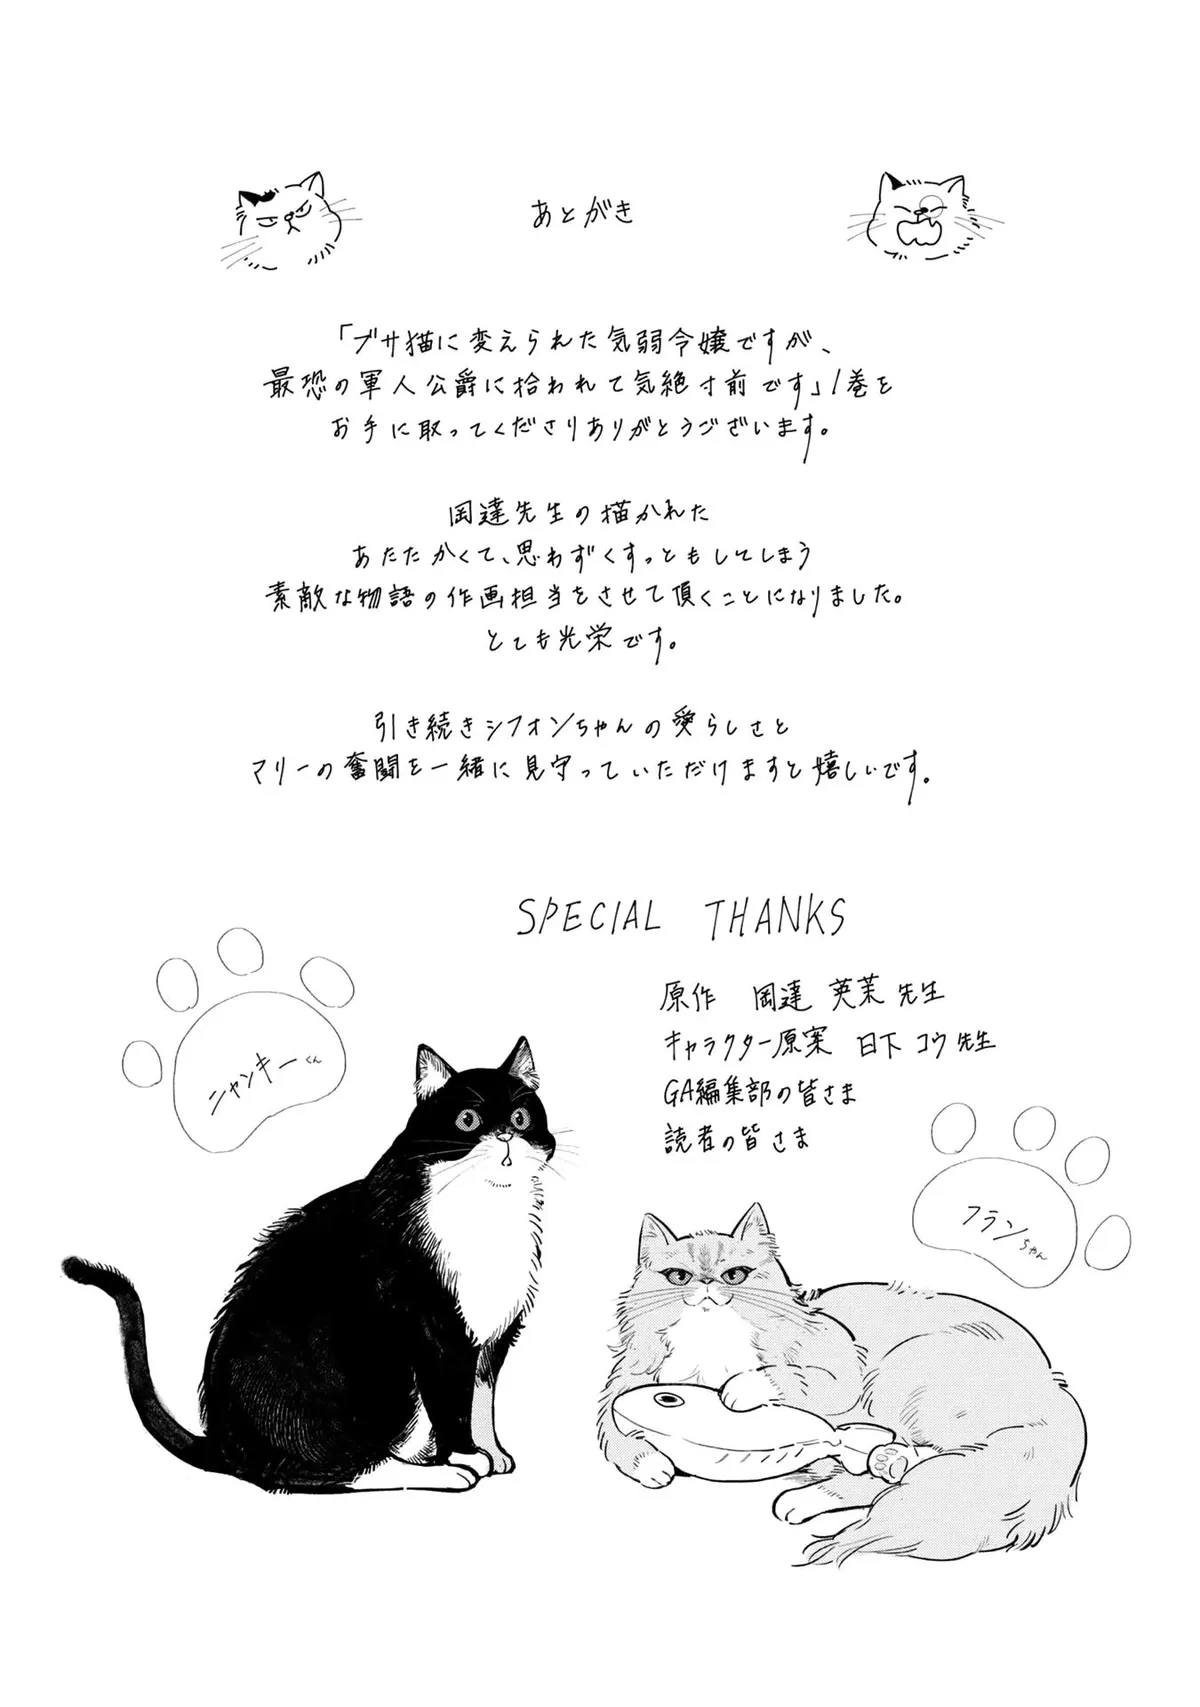 あとがき
「ブサ猫に変えられた気弱令嬢ですが、
最恐の軍人公爵に拾われて気絶寸前です」1巻を
お手に取ってくださりありがとうございます。
岡達先生の描かれた
あたたかくて、思わずくすっともしてしまう
素敵な物語の作画担当をさせて頂くことになりました。
とても光栄です。
引き続きシフォンちゃんの愛らしさと
マリーの奮闘を一緒に見守っていただけますと嬉しいです。
SPECIAL THANKS
原作 岡達 英茉 先生
キャラクター原案 日下 コウ 先生
GA編集部の皆さま
読者の皆さま
ニャンキーくん
フランちゃん